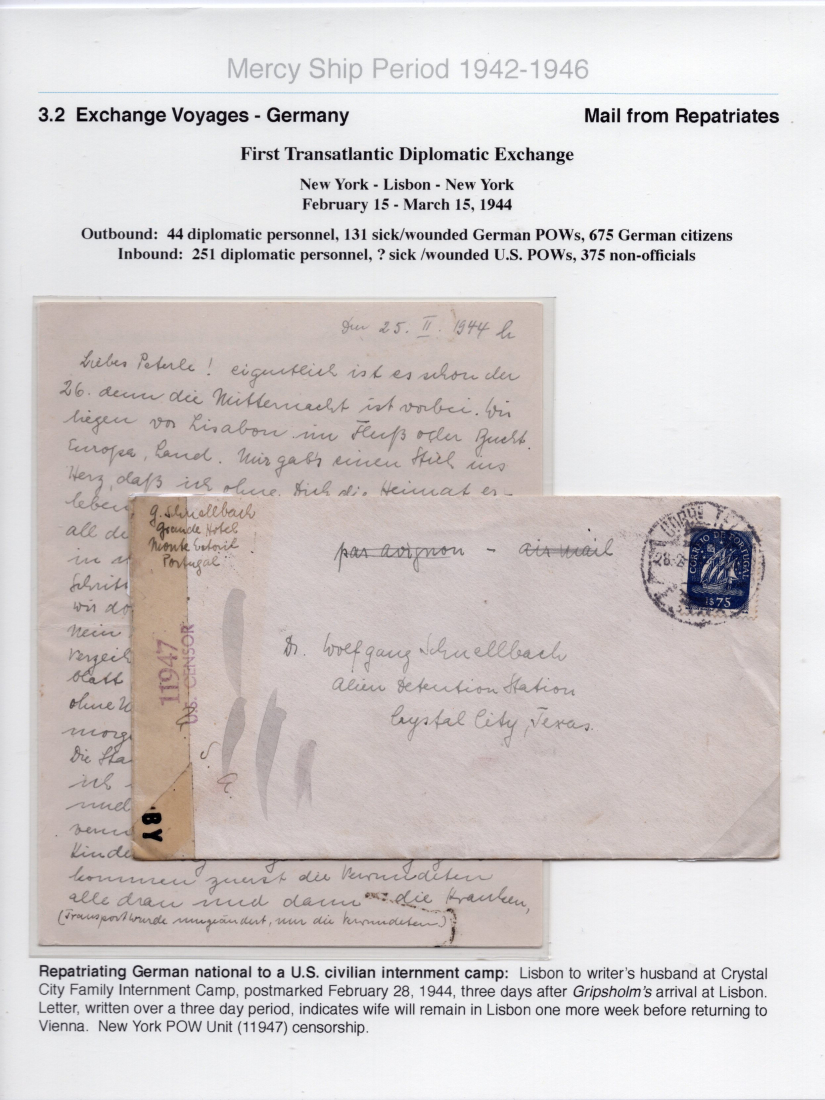 Mercy Ship Period 1942-1946
3.2 Exchange Voyages - Germany
Mail from Repatriates
First Transatlantic Diplomatic Exchange
New York - Lisbon - New York
February 15 - March 15, 1944
Outbound: 44 diplomatic personnel, 131 sick/wounded German POWs, 675 German citizens
Inbound: 251 diplomatic personnel, ? sick /wounded U.S. POWs, 375 non-officials
Den 25. II 1944
Liebes Peterle! eigentlich ist es schon der
26. denn die Mitternacht ist vorbei. Wir
liegen vor Lisabon im Fluß oder Bucht.
Europa, Land. Mir gab's einen Stich ins
Herz, daß ich ohne Dich die Heimat er-
leben
all
in
Schritt
wir
Nein
Verzeih
blatt
ohne
morge
Die Sta
ich
und
Kinde
kommen zuerst die Verwundeten
alle dran und dann die Kranken,
(Transport wurde umgeändert, nur die Verwundeten)
G. Schnellbach
Grande Hotel
Monte Estoril
Portugal
par avignon - air mail
CORREIO DE PORTUGAL
1$75
11947
U.S. CENSOR
BY
Dr. Wolfgang Schnellbach
Alien Detention Station
Crystal City, Texas.
Repatriating German national to a U.S. civilian internment camp: Lisbon to writer's husband at Crystal
City Family Internment Camp, postmarked February 28, 1944, three days after Gripsholm's arrival at Lisbon.
Letter, written over a three day period, indicates wife will remain in Lisbon one more week before returning to
Vienna. New York POW Unit (11947) censorship.